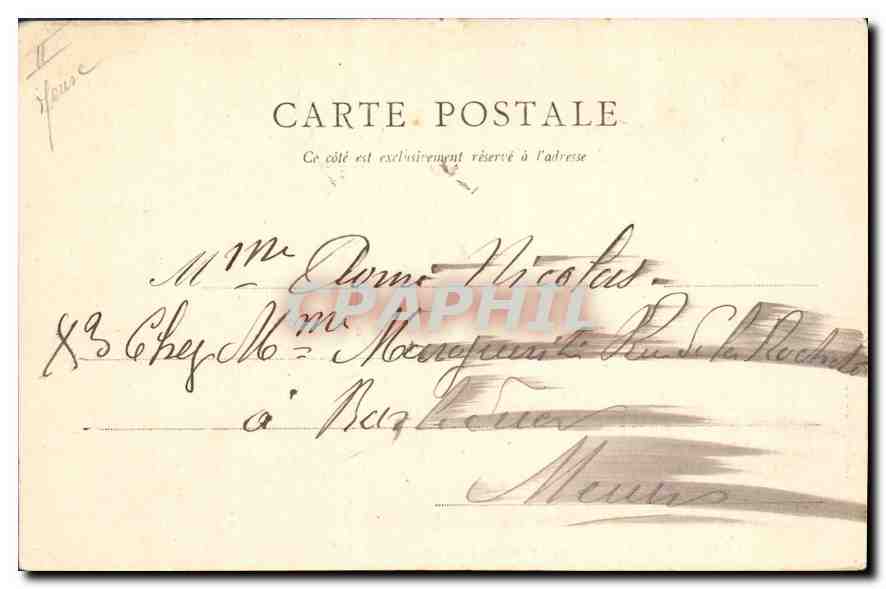 II
Meuse
CARTE POSTALE
Ce côté est exclusivement réservé à l'adresse
Mme Nicolas
CPAPHIL
83 Chez Mme Marguerite Rue de la Rochelle
à Bar le Duc
Meuse